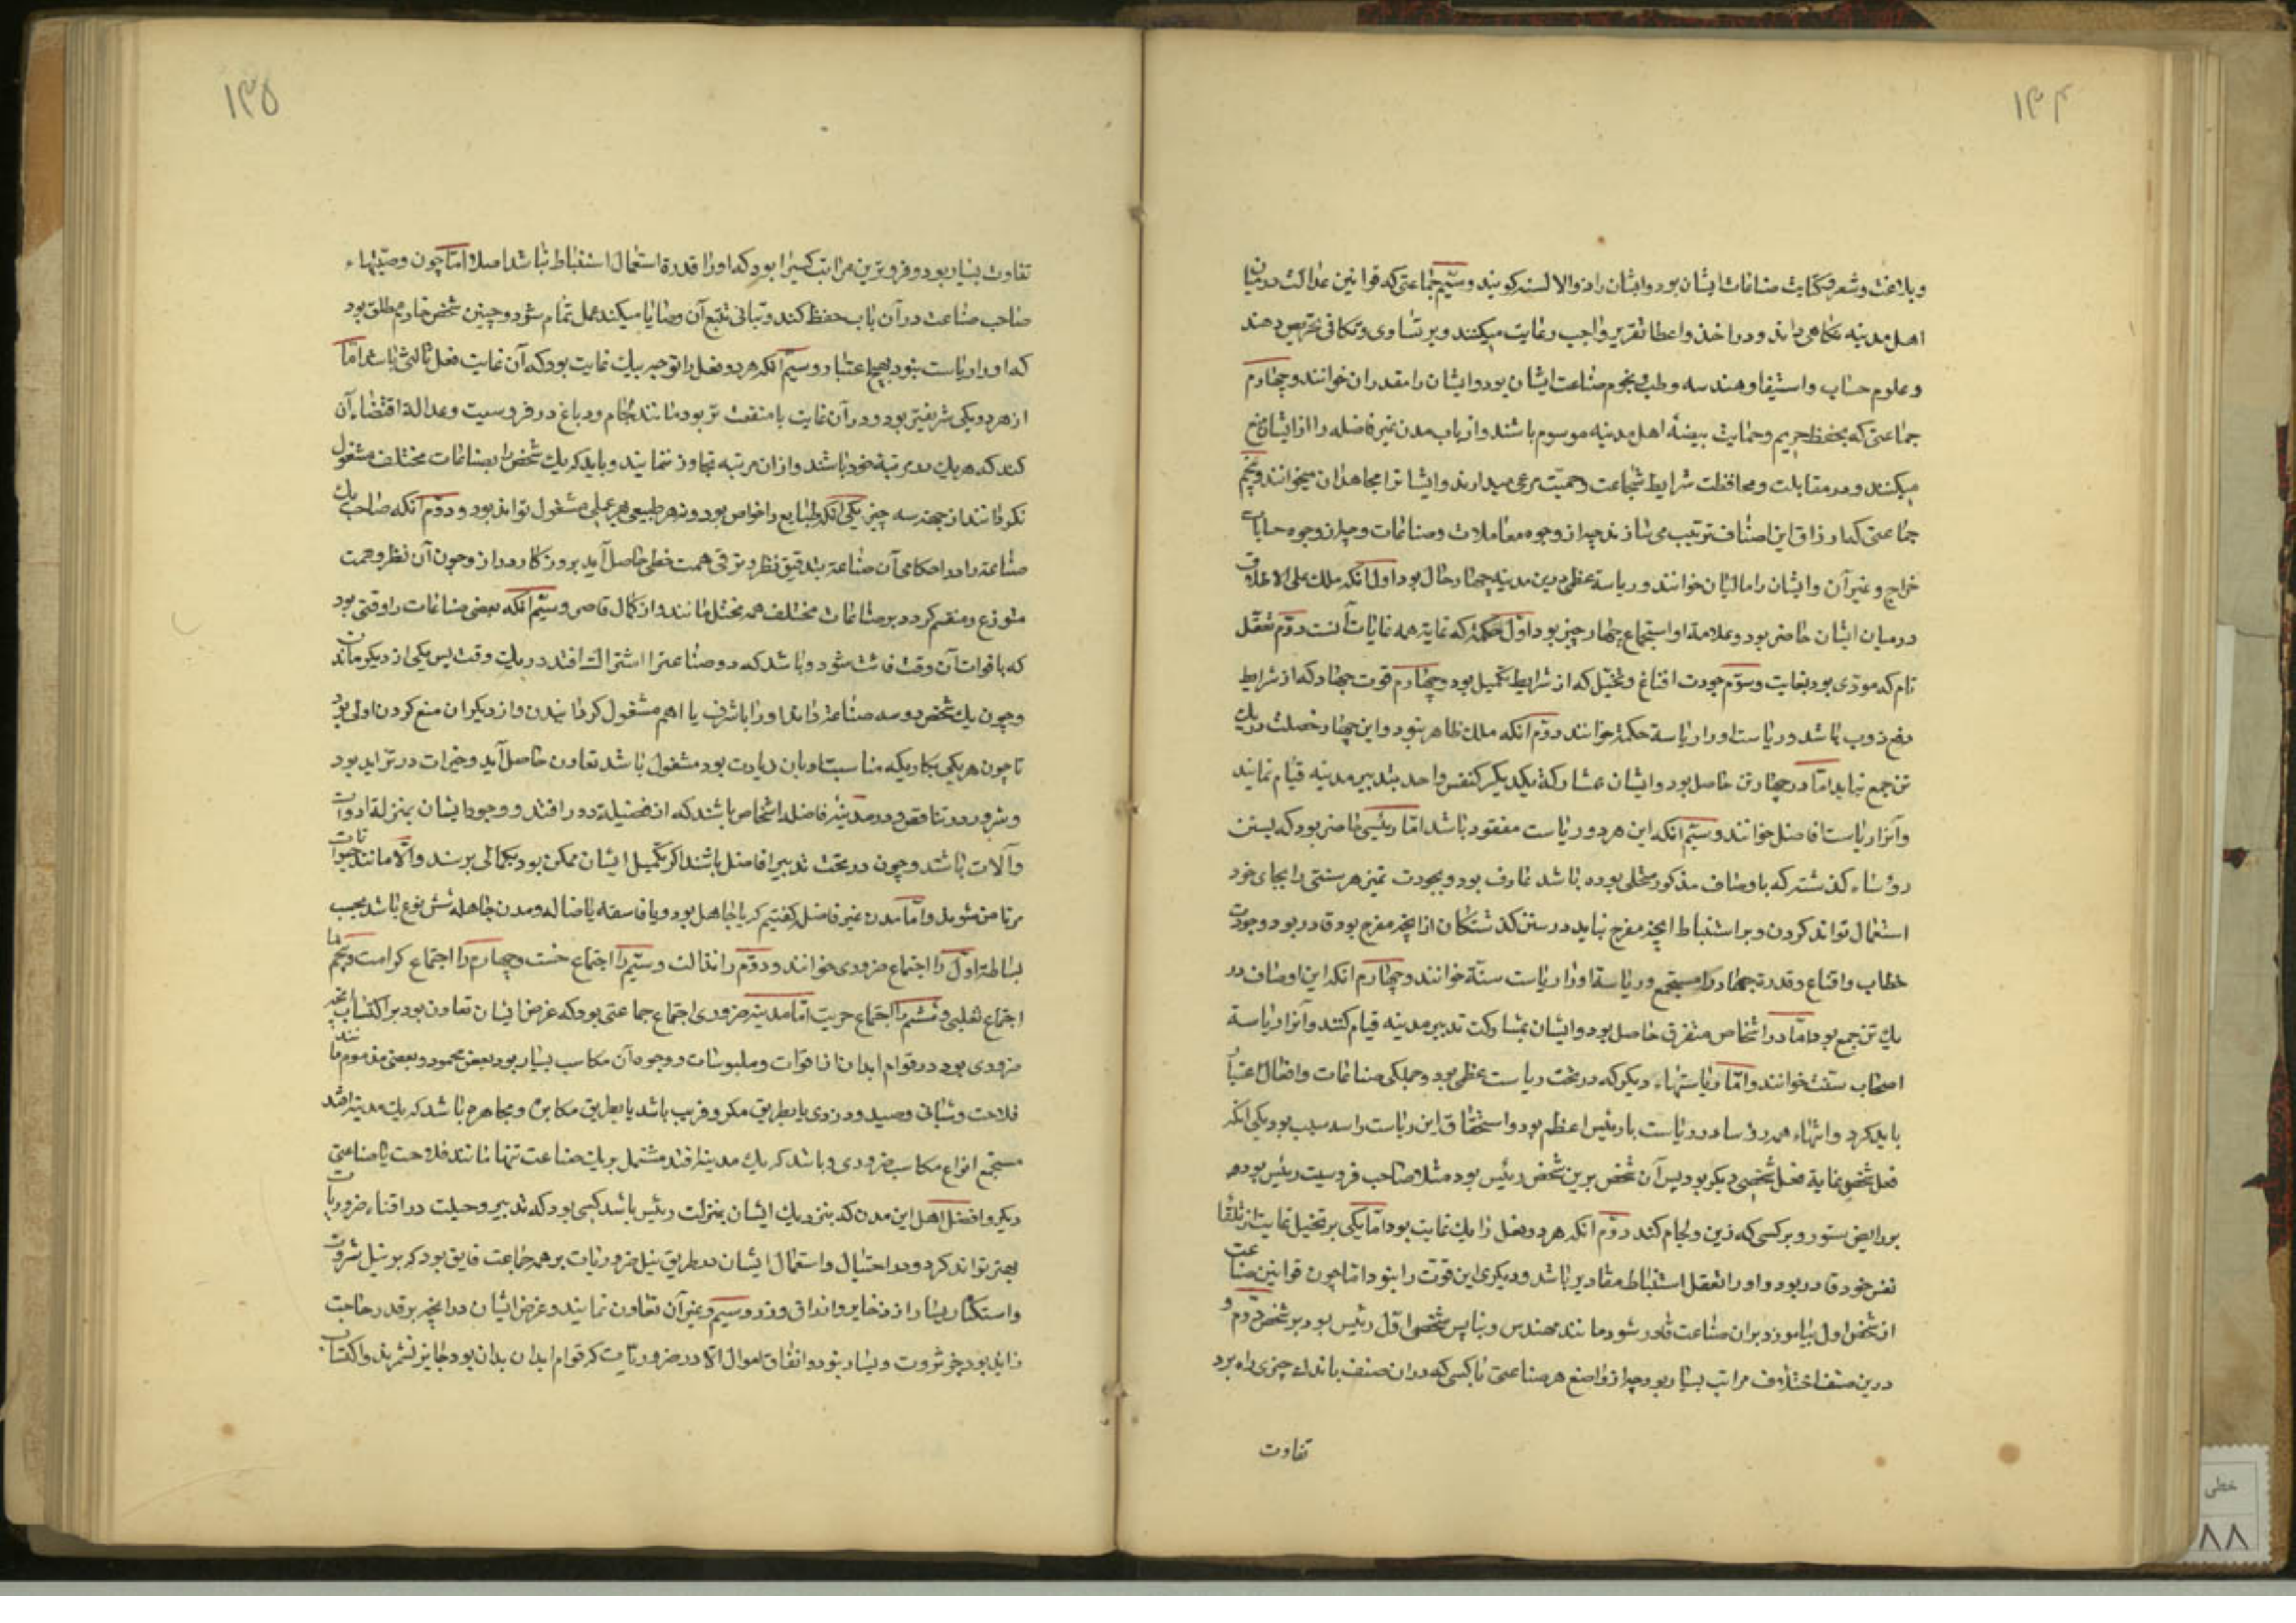 ۱۳۴
وبلاغت وشعر وکتابت صناعات ایشان بود وایشان را ذوالالسنه کویند وسیّم جماعتی که قوانین عدالت در میان
اهل مدینه نکاه می دارند ودر اخذ واعطا تقریر واجب رعایت میکنند وبر تساوی وتکافی تحریص دهند
وعلوم حساب واستیفا وهندسه وطب ونجوم صناعت ایشان بود وایشان را مقدران خوانند وچهارم
جماعتی که بحفظ حریم وحمایت بیضهٔ اهل مدینه موسوم باشند وارباب مدن غیر فاضله را از ایشان منع
میکنند ودر مقابلت ومحافظت شرایط شجاعت وحمیّت مرعی میدارند وایشانرا مجاهدان میخوانند وپنجم
جماعتی که ارزاق این اصناف ترتیب می سازند چه از وجوه معاملات وصناعات وچه از وجوه جبایات
خراج وغیر آن وایشان را مالیان خوانند وریاسة عظمی درین مدینه چهار حال بود اول آنکه ملک علی الاطلاق
در میان ایشان حاضر بود وعلامة او استجماع چهار چیز بود اوّل حکمة که غایة همه غایات آنست دوّم تعقّل
تام که مودّی بود بغایت وسوّم جودت اقناع وتخیّل که از شرایط تکمیل بود وچهارم قوت جهاد که از شرایط
دفع وذب باشد وریاست او را ریاسة حکمة خوانند دوّم انکه ملک ظاهر نبود واین چهار خصلت در یک
تن جمع نیاید امّا در چهار تن حاصل بود وایشان بمشارکة یکدیکر کنفس واحد بتدبیر مدینه قیام نمایند
وآنرا ریاست افاضل خوانند وسیّم انکه این هر دو ریاست مفقود باشد امّا رئیسی حاضر بود که بسنن
رؤساء کذشته که باوصاف مذکور متحلی بوده باشد عارف بود وبجودت تمیز هر سنتی را بجای خود
استعمال تواند کردن وبر استنباط انچه مصرح نیاید در سنن کذشتکان از انچه مصرح بود قادر بود وجودت
خطاب واقناع وقدرة جهاد را مستجمع وریاسة او را ریاست سنّة خوانند وچهارم انکه این اوصاف در
یک تن جمع نبود امّا در اشخاص متفرق حاصل بود وایشان بمشارکت تدبیر مدینه قیام کنند وآنرا ریاسة
اصحاب سنّت خوانند وامّا ریاستهاء دیکر که در تحت ریاست عظمی بود وجملکی صناعات وافعال اعتبار
باید کرد وانتهاء همه رؤسا در ریاست با رئیس اعظم بود واستحقاق این ریاست را سه سبب بود یکی انکه
فعل شخصی غایة فعل شخصی دیکر بود پس آن شخص برین شخص رئیس بود مثلا صاحب فروسیت رئیس بود
بر رایض ستور وبر کسی که زین ولجام کند دوّم انکه هر دو فعل را یک غایت بود امّا یکی بر تخیل غایت از تلقا
نفس خود قادر بود واو را تعقل استنباط مقادیر باشد ودیکری این قوّت را نبود امّا چون قوانین صناعت
از شخص اول بیاموزد بران صناعت قادر شود مانند مهندس وبنا پس شخص اوّل رئیس بود بر شخص دوّم و
درین صنف اختلاف مراتب بسیار بود چه از واضع هر صناعتی تا کسی که دران صنف باندک چیزی راه برد
تفاوت
۱۳۵
تفاوت بسیار بود وفروترین مراتب کسی را بود که او را قدرة استعمال استنباط نباشد اصلا امّا چون وصیّتهاء
صاحب صناعت در آن باب حفظ کند وبتانی تتبع آن وصایا میکند عمل تمام شود وچنین شخص خادم مطلق بود
که او را ریاست نبود بهیچ اعتبار وسیّم انکه هر دو فعل را توجه بیک غایت بود که آن غایت فعل ثالثی باشد امّا
از هر دو یکی شریفتر بود ودر آن غایت با منفعت تر بود مانند لجام ودباغ در فروسیت وعدالة اقتضاء آن
کند که هر یک در مرتبة خود باشند واز ان مرتبه تجاوز ننمایند وباید که یک شخص را بصناعات مختلف مشغول
نکردانند از جهة سه چیز یکی انکه طبایع را خواص بود ونه هر طبیعی بهر عملی مشغول تواند بود ودوّم آنکه صاحب یک
صناعة را در احکام آن صناعة بتدقیق نظر وترقی همت حظی حاصل آید بروزکار دراز وچون آن نظر وهمت
متوزع ومنقسم کردد بر صناعات مختلف همه مختل مانند واز کمال قاصر وسیّم آنکه بعضی صناعات را وقتی بود
که با فوات آن وقت فائت شود وباشد که دو صناعت را اشتراک افتد در یک وقت پس یکی از دیکر ماند
وچون یک شخص دو سه صناعة داند او را باشرف یا اهم مشغول کردانیدن واز دیکران منع کردن اولی بود
تا چون هر یکی بکاریکه مناسبت او بان زیادت بود مشغول باشد تعاون حاصل آید وخیرات در تزاید بود
وشرور در تناقص ودر مدینهٔ فاضله اشخاص باشند که از فضیلة دور افتند ووجود ایشان بمنزلة ادوات
وآلات باشد وچون در تحت تدبیر افاضل باشند اکر تکمیل ایشان ممکن بود بکمالی برسند والّا مانند حیوانات
مرتاض شوند وامّا مدن غیر فاضله کفتیم که یا جاهله بود ویا فاسقه یا ضاله ومدن جاهله شش نوع باشد بحسب
بساطة اوّل را اجتماع ضروری خوانند ودوّم را نذالت وسیّم را اجتماع خست وچهارم را اجتماع کرامت وپنجم را
اجتماع تغلبی وششم را اجتماع حریت امّا مدینهٔ ضروری اجتماع جماعتی بود که غرض ایشان تعاون بود بر اکتساب انچه
ضروری بود در قوام ابدان از اقوات وملبوسات ووجوه آن مکاسب بسیار بود بعضی محمود وبعضی مذموم مانند
فلاحت وشبانی وصید ودزدی یا بطریق مکر وفریب باشد یا بطریق مکابره ومجاهره باشد که یک مدینه افتد
مستجمع انواع مکاسب ضروری وباشد که یک مدینه افتد مشتمل بر یک صناعت تنها مانند فلاحت یا صناعتی
دیکر وافضل اهل این مدن که بنزدیک ایشان بمنزلت رئیس باشد کسی بود که تدبیر وحیلت در اقتناء ضروریات
بهتر تواند کرد ودر احتیال واستعمال ایشان در طریق نیل ضروریات بر همه جماعت فایق بود که بر نیل ثروت
واستکثار یسار از ذخایر وارزاق وزر وسیم وغیر آن تعاون نمایند وغرض ایشان در انچه بر قدر حاجت
زاید بود جز ثروت ویسار نبود وانفاق اموال الّا در ضروریّات که قوام ابدان بدان بود جایز نشمرند واکتساب
خطی
۸۸